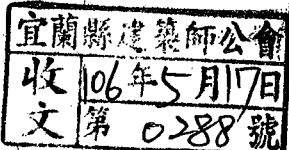 宜蘭縣建築師公會
收文
106年5月17日
第0288號